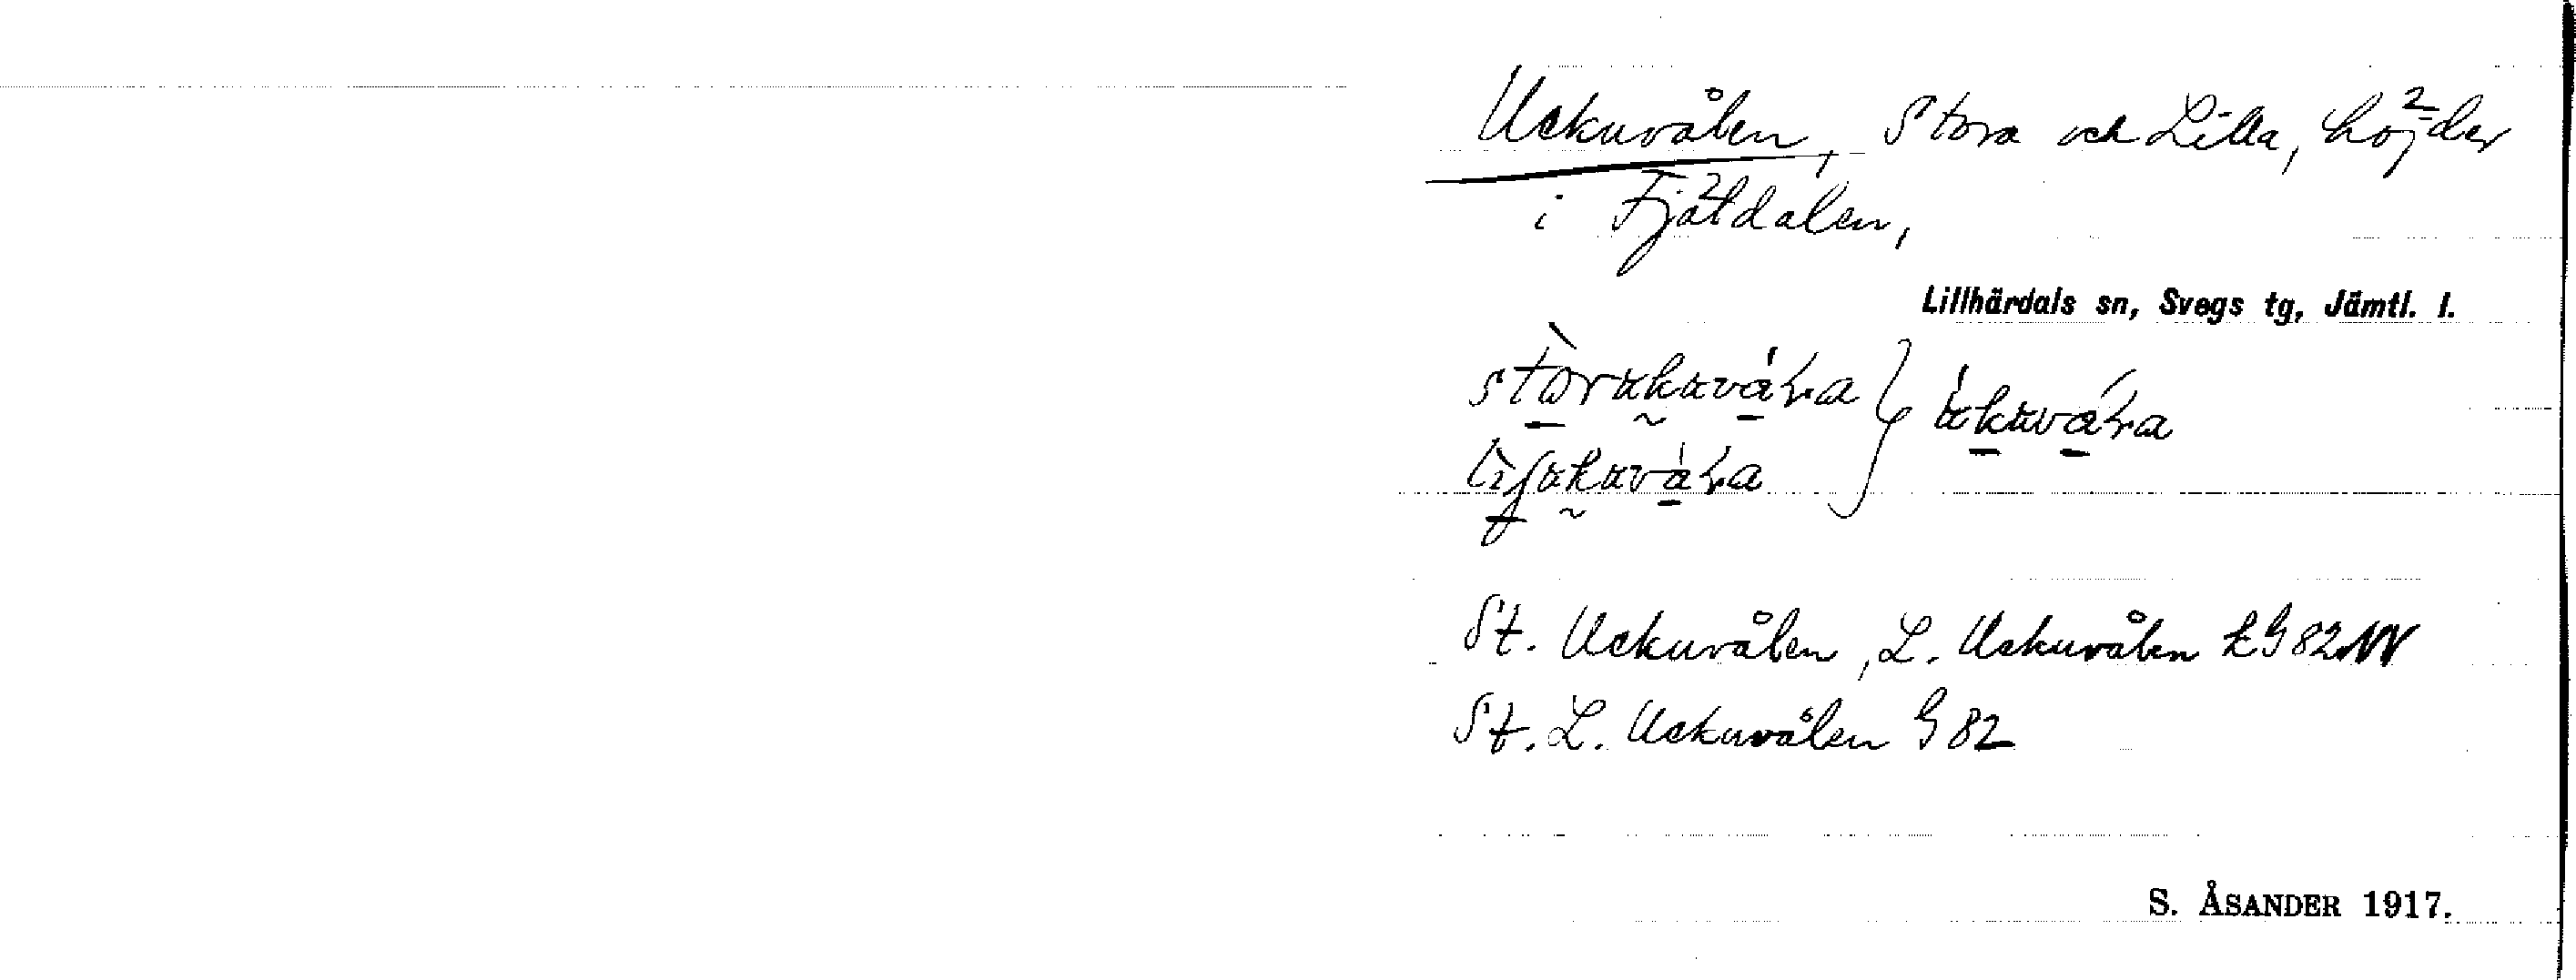 Uckuvålen, Stora och Lilla, höjder
i Fjätdalen,
Lillhärdals sn, Svegs tg, Jämtl. l.
St. Uckuvålen, L. Uckuvålen EG 82 NV
St. L. Uckuvålen G 82
S. ÅSANDER 1917.